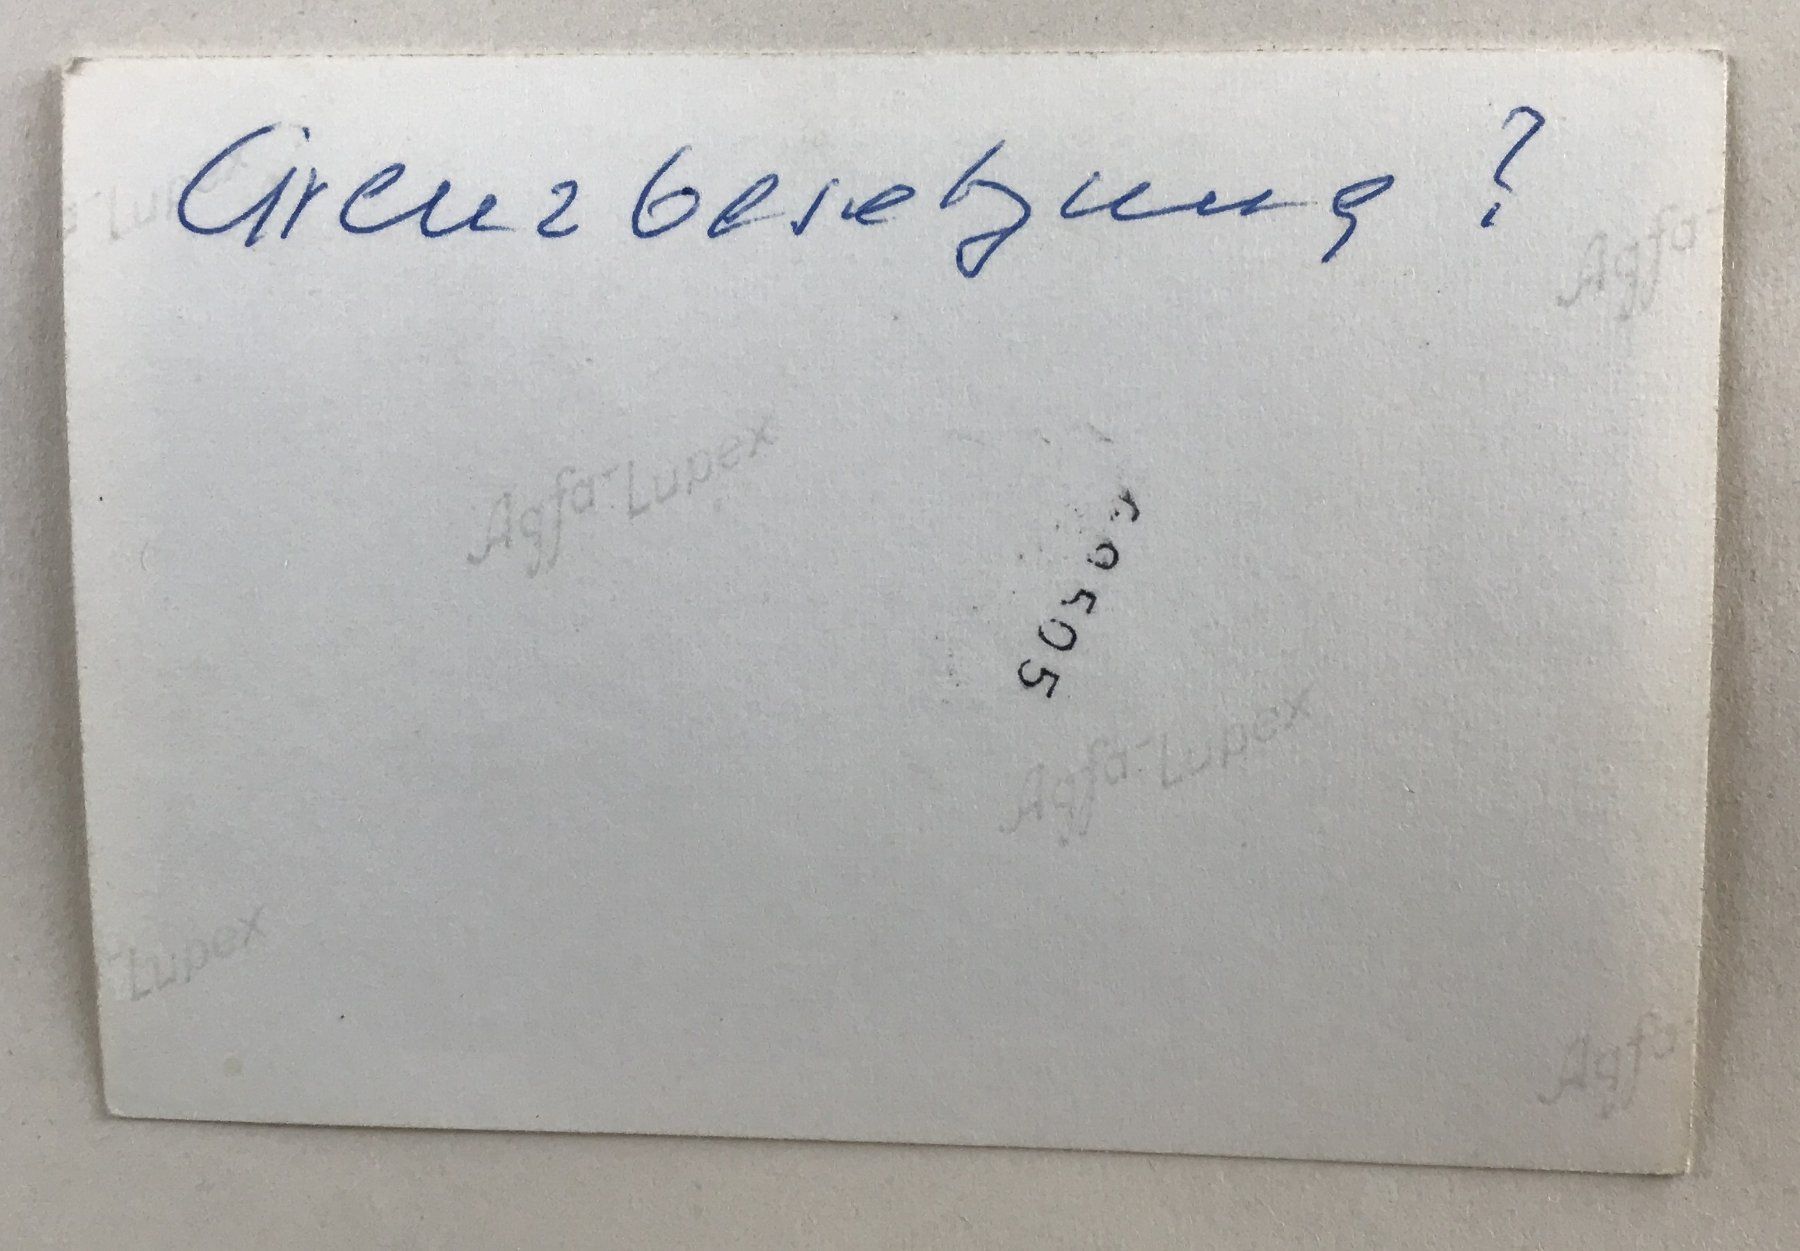 Grenzbesetzung ?
Agfa-Lupex
Agfa-
Agfa-Lupex
Agfa-Lupex
-Lupex
Agfa-